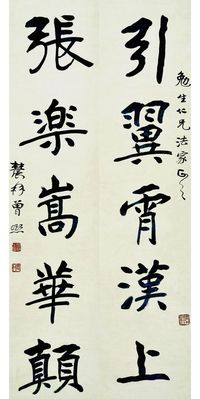 勉生仁兄法家正之
引翼霄漢上
張楽嵩華顛
農髯曾熙